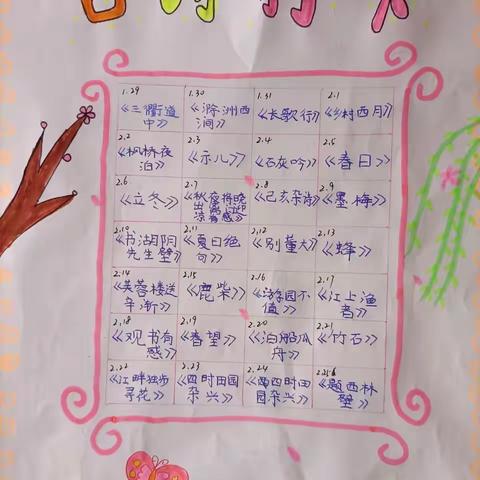 古诗打卡
1.29 1.30 1.31 2.1
《三衢道中》 《滁洲西涧》 《长歌行》 《乡村四月》
2.2 2.3 2.4 2.5
《枫桥夜泊》 《示儿》 《石灰吟》 《春日》
2.6 2.7 2.8 2.9
《立冬》 《秋夜将晓出篱门迎凉有感》 《己亥杂诗》 《墨梅》
2.10 2.11 2.12 2.13
《书湖阴先生壁》 《夏日绝句》 《别董大》 《蜂》
2.14 2.15 2.16 2.17
《芙蓉楼送辛渐》 《鹿柴》 《游园不值》 《江上渔者》
2.18 2.19 2.20 2.21
《观书有感》 《春望》 《泊船瓜舟》 《竹石》
2.22 2.23 2.24 2.25
《江畔独步寻花》 《四时田园杂兴》 《四时田园杂兴》 《题西林壁》